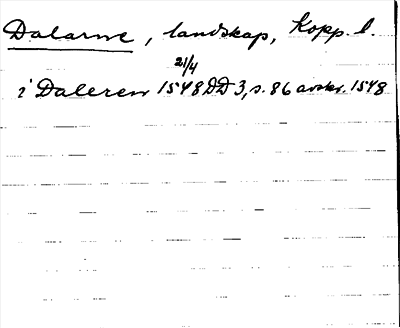 Dalarne, landskap, Kopp. l.
21/4
i Daleren 1548 DD 3, s. 86 avskr. 1548